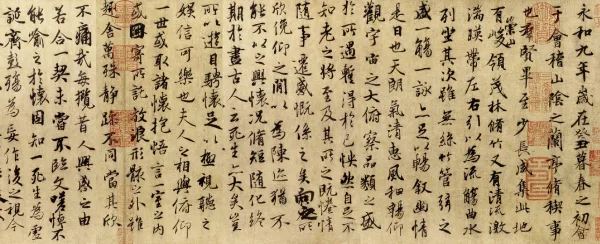 永和九年歲在癸丑暮春之初會
于會稽山陰之蘭亭脩稧事
也羣賢畢至少長咸集此地
有崇山峻領茂林脩竹又有清流激
湍暎帶左右引以為流觴曲水
列坐其次雖無絲竹管弦之
盛一觴一詠亦足以暢敘幽情
是日也天朗氣清惠風和暢仰
觀宇宙之大俯察品類之盛
於所遇蹔得於己怏然自足不
知老之將至及其所之既惓情
隨事遷感慨係之矣向之所
欣俛仰之閒以為陳迹猶不
能不以之興懷況脩短隨化終
期於盡古人云死生亦大矣豈
所以遊目騁懷足以極視聽之
娛信可樂也夫人之相與俯仰
一世或取諸懷抱悟言一室之內
或因寄所託放浪形骸之外雖
趣舍萬殊靜躁不同當其欣
不痛哉每攬昔人興感之由
若合一契未嘗不臨文嗟悼不
能喻之於懷固知一死生為虛
誕齊彭殤為妄作後之視今